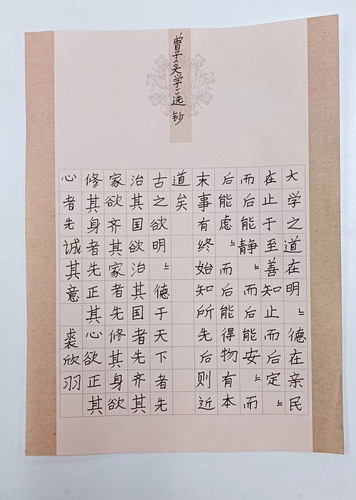 曾子大学选钞
大学之道在明〻德在亲民
在止于至善知止而后定〻
而后能静〻而后能安〻而
后能虑〻而后能得物有本
末事有终始知所先后则近
道矣
古之欲明〻德于天下者先
治其国欲治其国者先齐其
家欲齐其家者先修其身欲
修其身者先正其心欲正其
心者先诚其意 裘欣羽